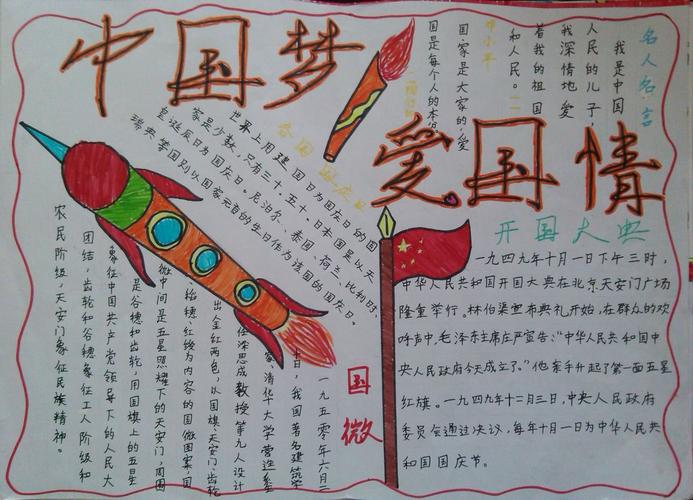 中国梦
爱国情
名人名言
我是中国
人民的儿子，
我深情地爱
着我的祖国
和人民。
邓小平
国家是大家的，爱
国是每个人的本
世界上用建国日为国庆日的国
家是少数，只有三十，五十，日本国是以天
皇诞辰日为国庆日。尼泊尔、泰国、荷兰、比利时、
瑞典等国别以国家元首的生日作为该国的国庆日。
开国大典
一九四九年十月一日下午三时，
中华人民共和国开国大典在北京天安门广场
隆重举行。林伯渠宣布典礼开始，在群众的欢
呼声中，毛泽东主席庄严宣告："中华人民共和国中
央人民政府今天成立了。"他亲手升起了第一面五星
红旗。一九四九年十二月三日，中央人民政府
委员会通过决议，每年十月一日为中华人民共
和国国庆节。
国微
一九五零年六月二
十日，我国著名建筑学
家、清华大学营造系
任梁思成教授等九人设计
出金红两色，以国旗、天安门、齿轮
稻穗、红绶为内容的国微图案，国
微中间是五星照耀下的天安门，周围
是谷穗和齿轮，用国旗上的五星
象征中国共产党领导下的人民大
团结，齿轮和谷穗象征工人阶级和
农民阶级，天安门象征民族精神。